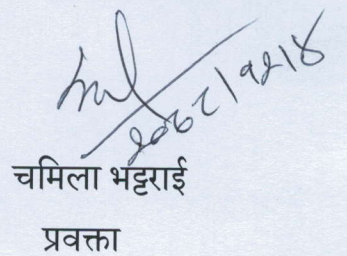 २०८२।१२।४
चमिला भट्टराई
प्रवक्ता